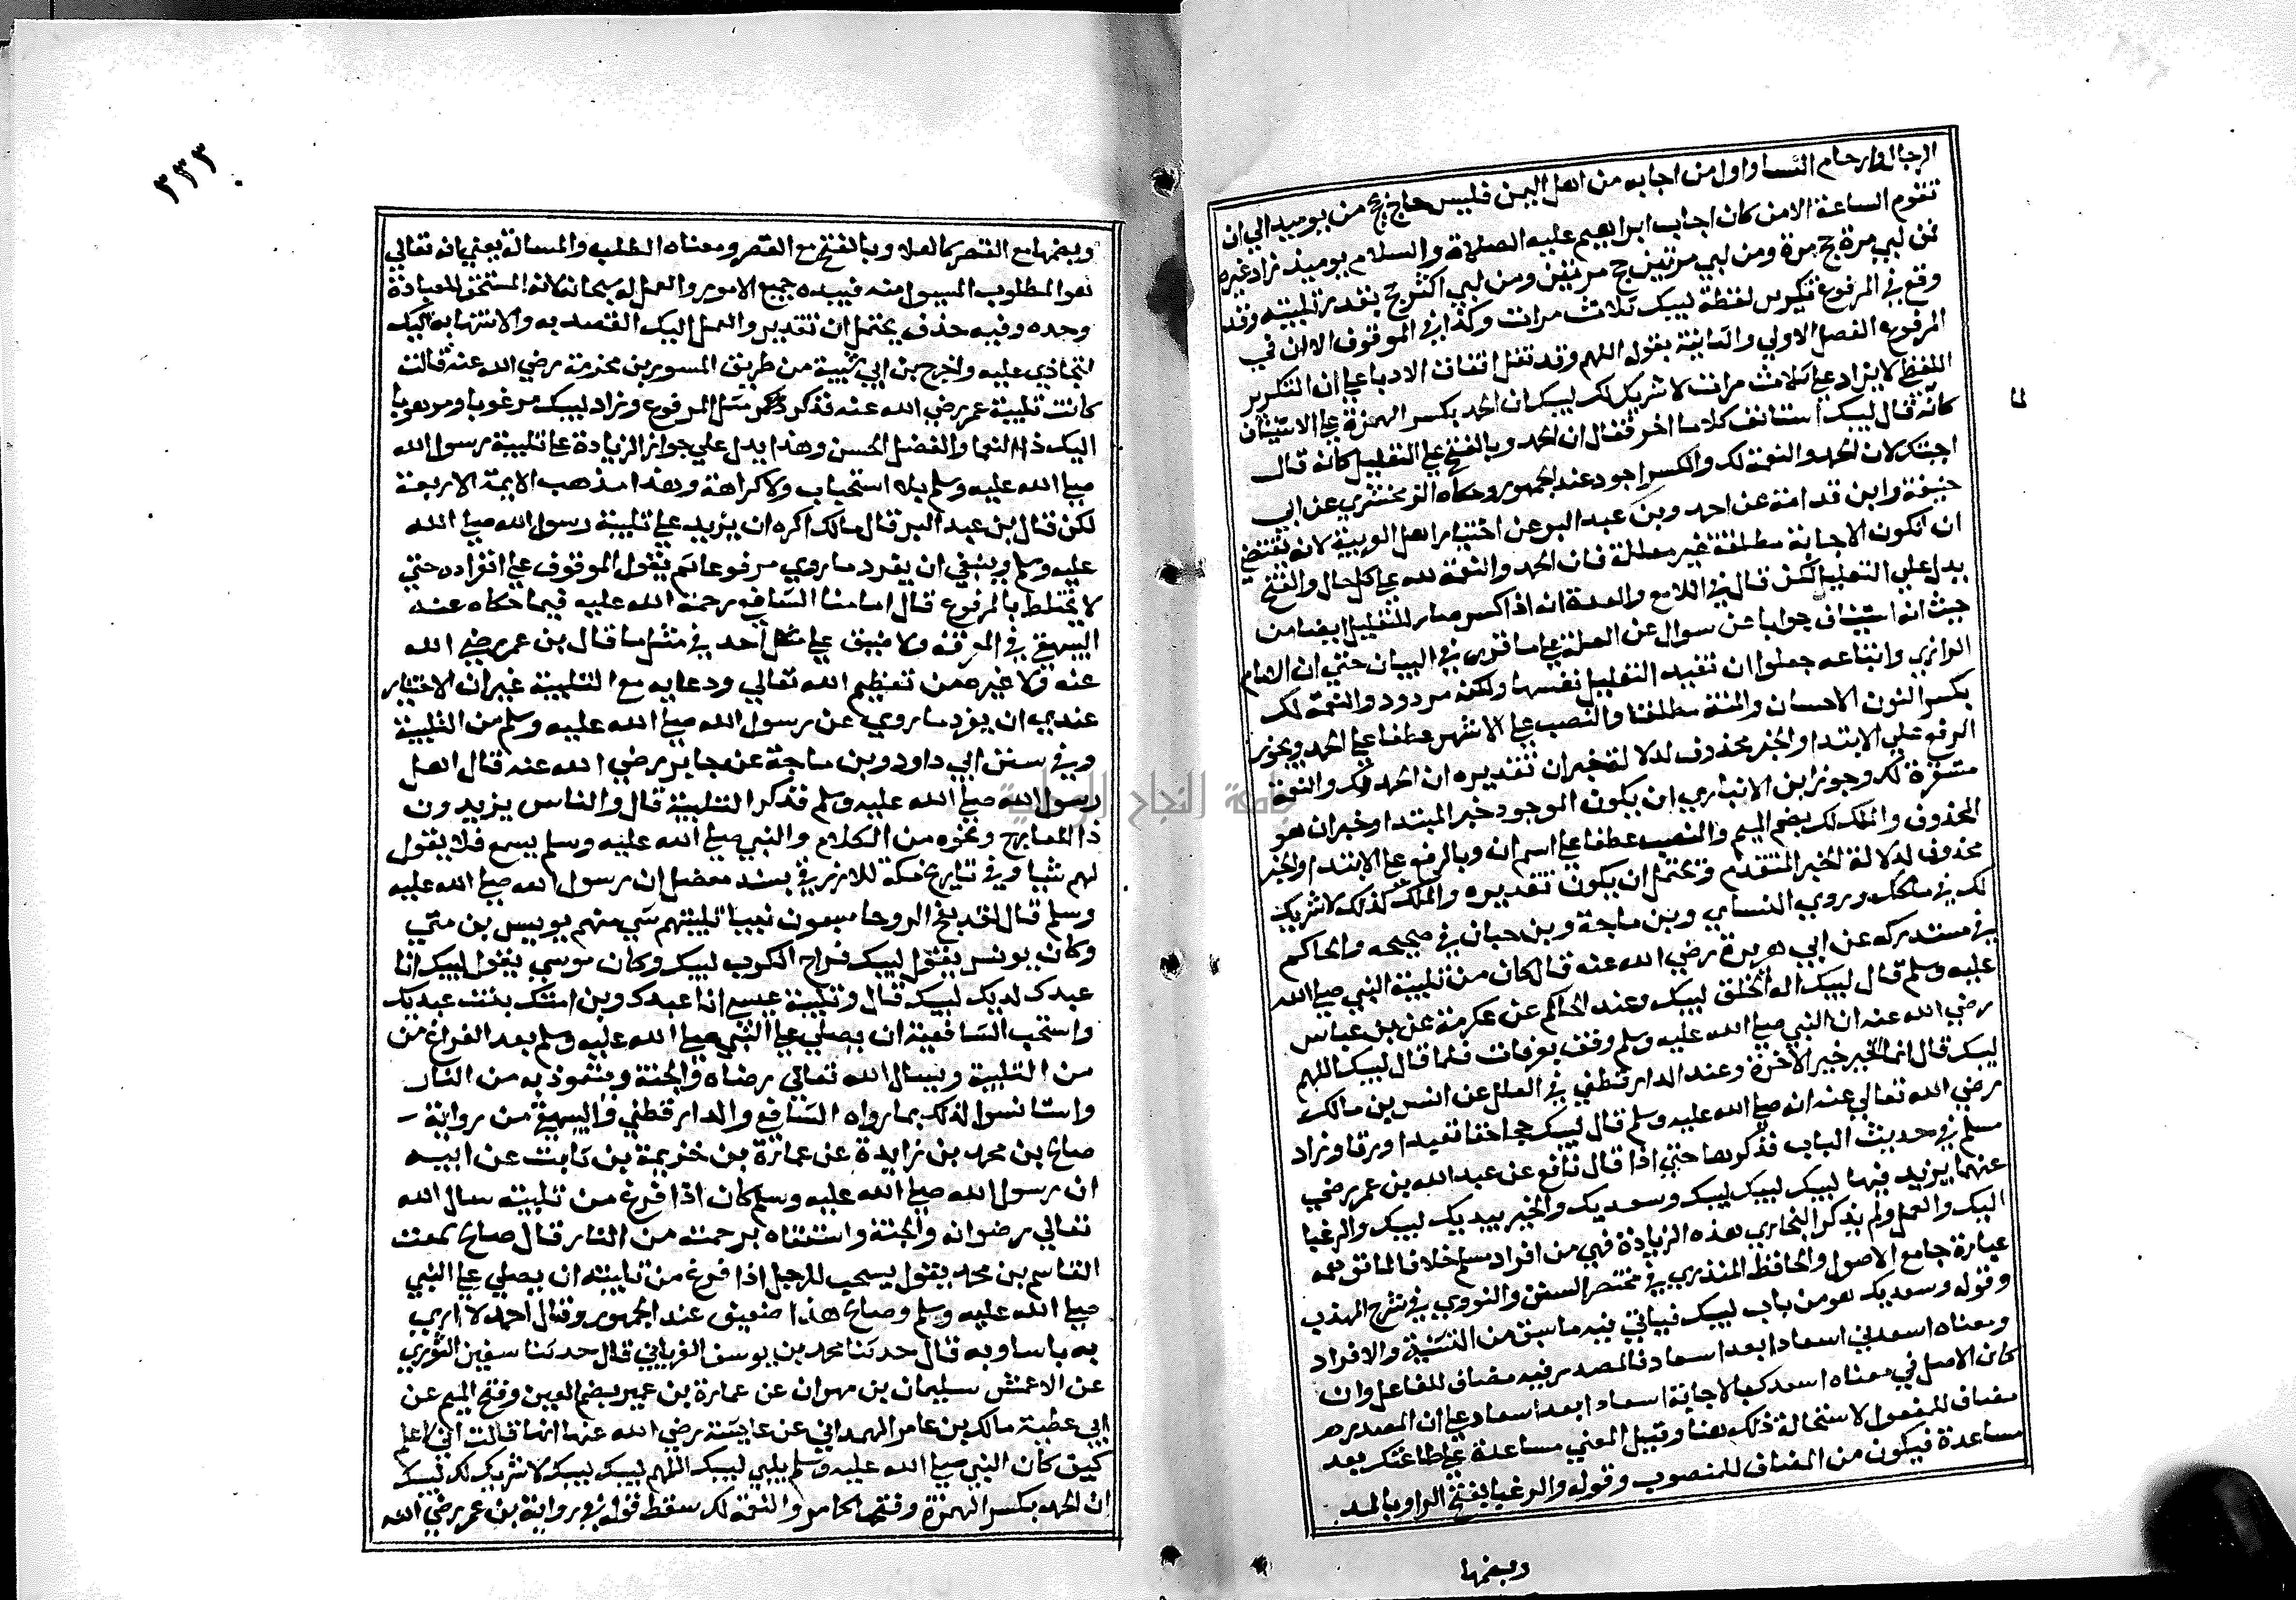 الرجال وارحام النسا واول من اجابه من اهل اليمن فليس حاج يحج من يوميذ الي ان
تقوم الساعة الا من كان اجاب ابراهيم عليه الصلاة والسلام يوميذ زاد غيره
فمن لبي مرة حج مرة ومن لبي مرتين حج مرتين ومن لبي اكثر حج بقدر تلبيته وقد
وقع في المرفوع تكرير لفظة لبيك ثلاث مرات وكذا في الموقوف الا ان في
المرفوع الفصل الاولي والثانية بقوله اللهم وقد نقل اتفاق الادبا علي ان التكرير
اللفظي لا يزاد علي ثلاث مرات لا شريك لك لبيك ان الحمد بكسر الهمزة علي الاستيناف
كانه قال لبيك استانف كلاما اخر فقال ان الحمد وبالفتح علي التعليل كانه قال
اجبتك لان الحمد والنعمة لك والكسر اجود عند الجمهور وحكاه الزمخشري عن ابي
حنيفة وابن قدامة عن احمد وبن عبد البر عن اختيار اهل العربية لانه يقتضي
ان تكون الاجابة مطلقة غير معللة فان الحمد والنعمة لله علي كل حال والفتح
يدل علي التعليل لكن قال في اللامع والعدة انه اذا كسر صار للتعليل ايضا من
حيث انه استيناف جوابا عن سوال عن العلة علي ما قرر في البيان حتي ان الامام
الرازي واتباعه جعلوا ان تفيد التعليل نفسها ولكنه مردود والنعمة لك
بكسر النون الاحسان والمنة مطلقا والنصب علي الاشهر عطفا علي الحمد ويجوز
الرفع علي الابتدا والخبر محذوف لدلالة خبر ان تقديره ان الحمد لك والنعمة
مستقرة لك وجوز ابن الانباري ان يكون الموجود خبر المبتدا وخبر ان هو
المحذوف والملك لك بضم الميم والنصب عطفا علي اسم ان وبالرفع علي الابتدا والخبر
محذوف لدلالة الخبر المتقدم ويحتمل ان يكون تقديره والملك كذلك لا شريك
لك في ملكك وروي النساي وبن ماجة وبن حبان في صحيحه والحاكم
في مستدركه عن ابي هريرة رضي الله عنه قال كان من تلبية النبي صلي الله
عليه وسلم قال لبيك اله الخلق لبيك وعند الحاكم عن عكرمة عن بن عباس
رضي الله عنه ان النبي صلي الله عليه وسلم وقف بعرفات فلما قال لبيك اللهم
لبيك قال انما الخير خير الاخرة وعند الدارقطني في العلل عن انس بن مالك
رضي الله تعالي عنه انه صلي الله عليه وسلم قال لبيك حجا حقا تعبدا ورقا وزاد
مسلم في حديث الباب فذكرها حتي اذا قال نافع عن عبد الله بن عمر رضي
عنهما يزيد فيها لبيك لبيك لبيك وسعديك والخير بيديك لبيك والرغبا
اليك والعمل ولم يذكر البخاري هذه الزيادة فهي من افراد مسلم خلافا لما توهمه
عبارة جامع الاصول والحافظ المنذري في مختصر السنن والنووي في شرح المهذب
وقوله وسعديك هو من باب لبيك فياتي فيه ما سبق من التثنية والافراد
ومعناه اسعدني اسعادا بعد اسعاد فالمصدر فيه مضاف للفاعل وان
كان الاصل في معناه اسعدك بالاجابة اسعادا بعد اسعاد علي ان المصدر هـ
مضاف للمفعول لاستحالة ذلك هنا وقيل المعني مساعدة علي طاعتك بعد
مساعدة فيكون من المضاف للمنصوب وقوله والرغبا بفتح الرا وبالمد
وبضمها
لما
٣٣٣
وبضمها مع القصر كالعلا وبالفتح مع القصر ومعناه الطلب والمسالة يعني انه تعالي
هو المطلوب المسيول منه فبيده جميع الامور والعمل له سبحانه لانه المستحق للعبادة
وحده وفيه حذف يحتمل ان تقديره والعمل اليك القصد به والانتها به اليك
لتجازي عليه واخرج بن ابي شيبة من طريق المسور بن مخرمة رضي الله عنه قالت
كانت تلبية عمر رضي الله عنه فذكر مثل المرفوع وزاد لبيك مرغوبا ومرهوبا
اليك ذا النعما والفضل الحسن وهذا يدل علي جواز الزيادة علي تلبية رسول الله
صلي الله عليه وسلم بلا استحباب ولا كراهة وهذا مذهب الايمة الاربعة
لكن قال بن عبد البر قال مالك اكره ان يزيد علي تلبية رسول الله صلي الله
عليه وسلم وينبغي ان يفرد ما روي مرفوعا ثم يقول الموقوف علي انفراده حتي
لا يختلط بالمرفوع قال امامنا الشافعي رحمة الله عليه فيما حكاه عنه
البيهقي في المعرفة ولا ضيق علي احد في مثل ما قال بن عمر رضي الله
عنه ولا غيره من تعظيم الله تعالي ودعايه مع التلبية غير ان الاختيار
عندي ان يفرد ما روي عن رسول الله صلي الله عليه وسلم من التلبية
وفي سنن ابي داود وبن ماجة عن جابر رضي الله عنه قال اهل
رسول الله صلي الله عليه وسلم فذكر التلبية قال والناس يزيدون
ذا المعارج ونحوه من الكلام والنبي صلي الله عليه وسلم يسمع فلا يقول
لهم شيا وفي تاريخ مكة للازرقي بسند معضل ان رسول الله صلي الله عليه
وسلم قال لقد بفج الروحا سبعون نبيا تلبيتهم شتي منهم يونس بن متي
وكان يونس يقول لبيك فراج الكرب لبيك وكان موسي يقول لبيك انا
عبدك لديك لبيك قال وتلبية عيسي انا عبدك وبن امتك بنت عبديك
واستحب الشافعية ان يصلي علي النبي صلي الله عليه وسلم بعد الفراغ من
من التلبية ويسال الله تعالي رضاه والجنة ويتعوذ به من النار
واستانسوا لذلك بما رواه الشافعي والدارقطني والبيهقي من رواية
صالح بن محمد بن زايدة عن عمارة بن خزيمة بن ثابت عن ابيه
ان رسول الله صلي الله عليه وسلم كان اذا فرغ من تلبيته سال الله
تعالي رضوانه والجنة واستعفاه برحمته من النار قال صالح سمعت
القاسم بن محمد يقول يستحب للرجل اذا فرغ من تلبيته ان يصلي علي النبي
صلي الله عليه وسلم وصالح هذا ضعيف عند الجمهور وقال احمد لا اري
به باسا وبه قال حدثنا محمد بن يوسف الفريابي قال حدثنا سفين الثوري
عن الاعمش سليمان بن مهران عن عمارة بن عمير بضم العين وفتح الميم عن
ابي عطية مالك بن عامر الهمداني عن عايشة رضي الله عنها انها قالت اني لاعلم
كيف كان النبي صلي الله عليه وسلم يلبي لبيك اللهم لبيك لبيك لا شريك لك لبيك
ان الحمد بكسر الهمزة وفتحها كما مر والنعمة لك سقط قوله في رواية بن عمر رضي الله
جامعة النجاح الوطنية